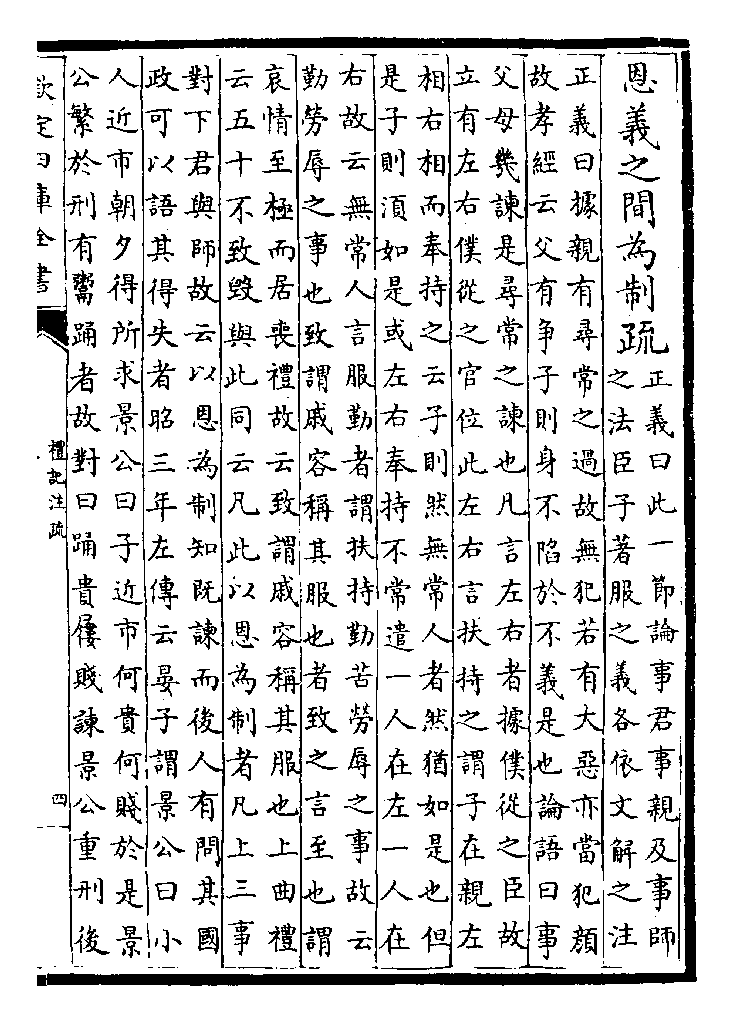 恩義之間為制疏
正義曰此一節論事君事親及事師
之法臣子著服之義各依文解之注
正義曰據親有尋常之過故無犯若有大惡亦當犯顔
故孝經云父有争子則身不陷於不義是也論語曰事
父母幾諫是尋常之諫也凡言左右者據僕從之臣故
立有左右僕從之官位此左右言扶持之謂子在親左
相右相而奉持之云子則然無常人者然猶如是也但
是子則湏如是或左右奉持不常遣一人在左一人在
右故云無常人言服勤者謂扶持勤苦勞辱之事故云
勤勞辱之事也致謂戚容稱其服也者致之言至也謂
哀情至極而居喪禮故云致謂戚容稱其服也上曲禮
云五十不致毁與此同云凡此以恩為制者凡上三事
對下君與師故云以恩為制知既諫而後人有問其國
政可以語其得失者昭三年左傳云晏子謂景公曰小
人近市朝夕得所求景公曰子近市何貴何賤於是景
公繁於刑有鬻踊者故對曰踊貴屨賤諫景公重刑後
欽定四庫全書
禮記注疏
四